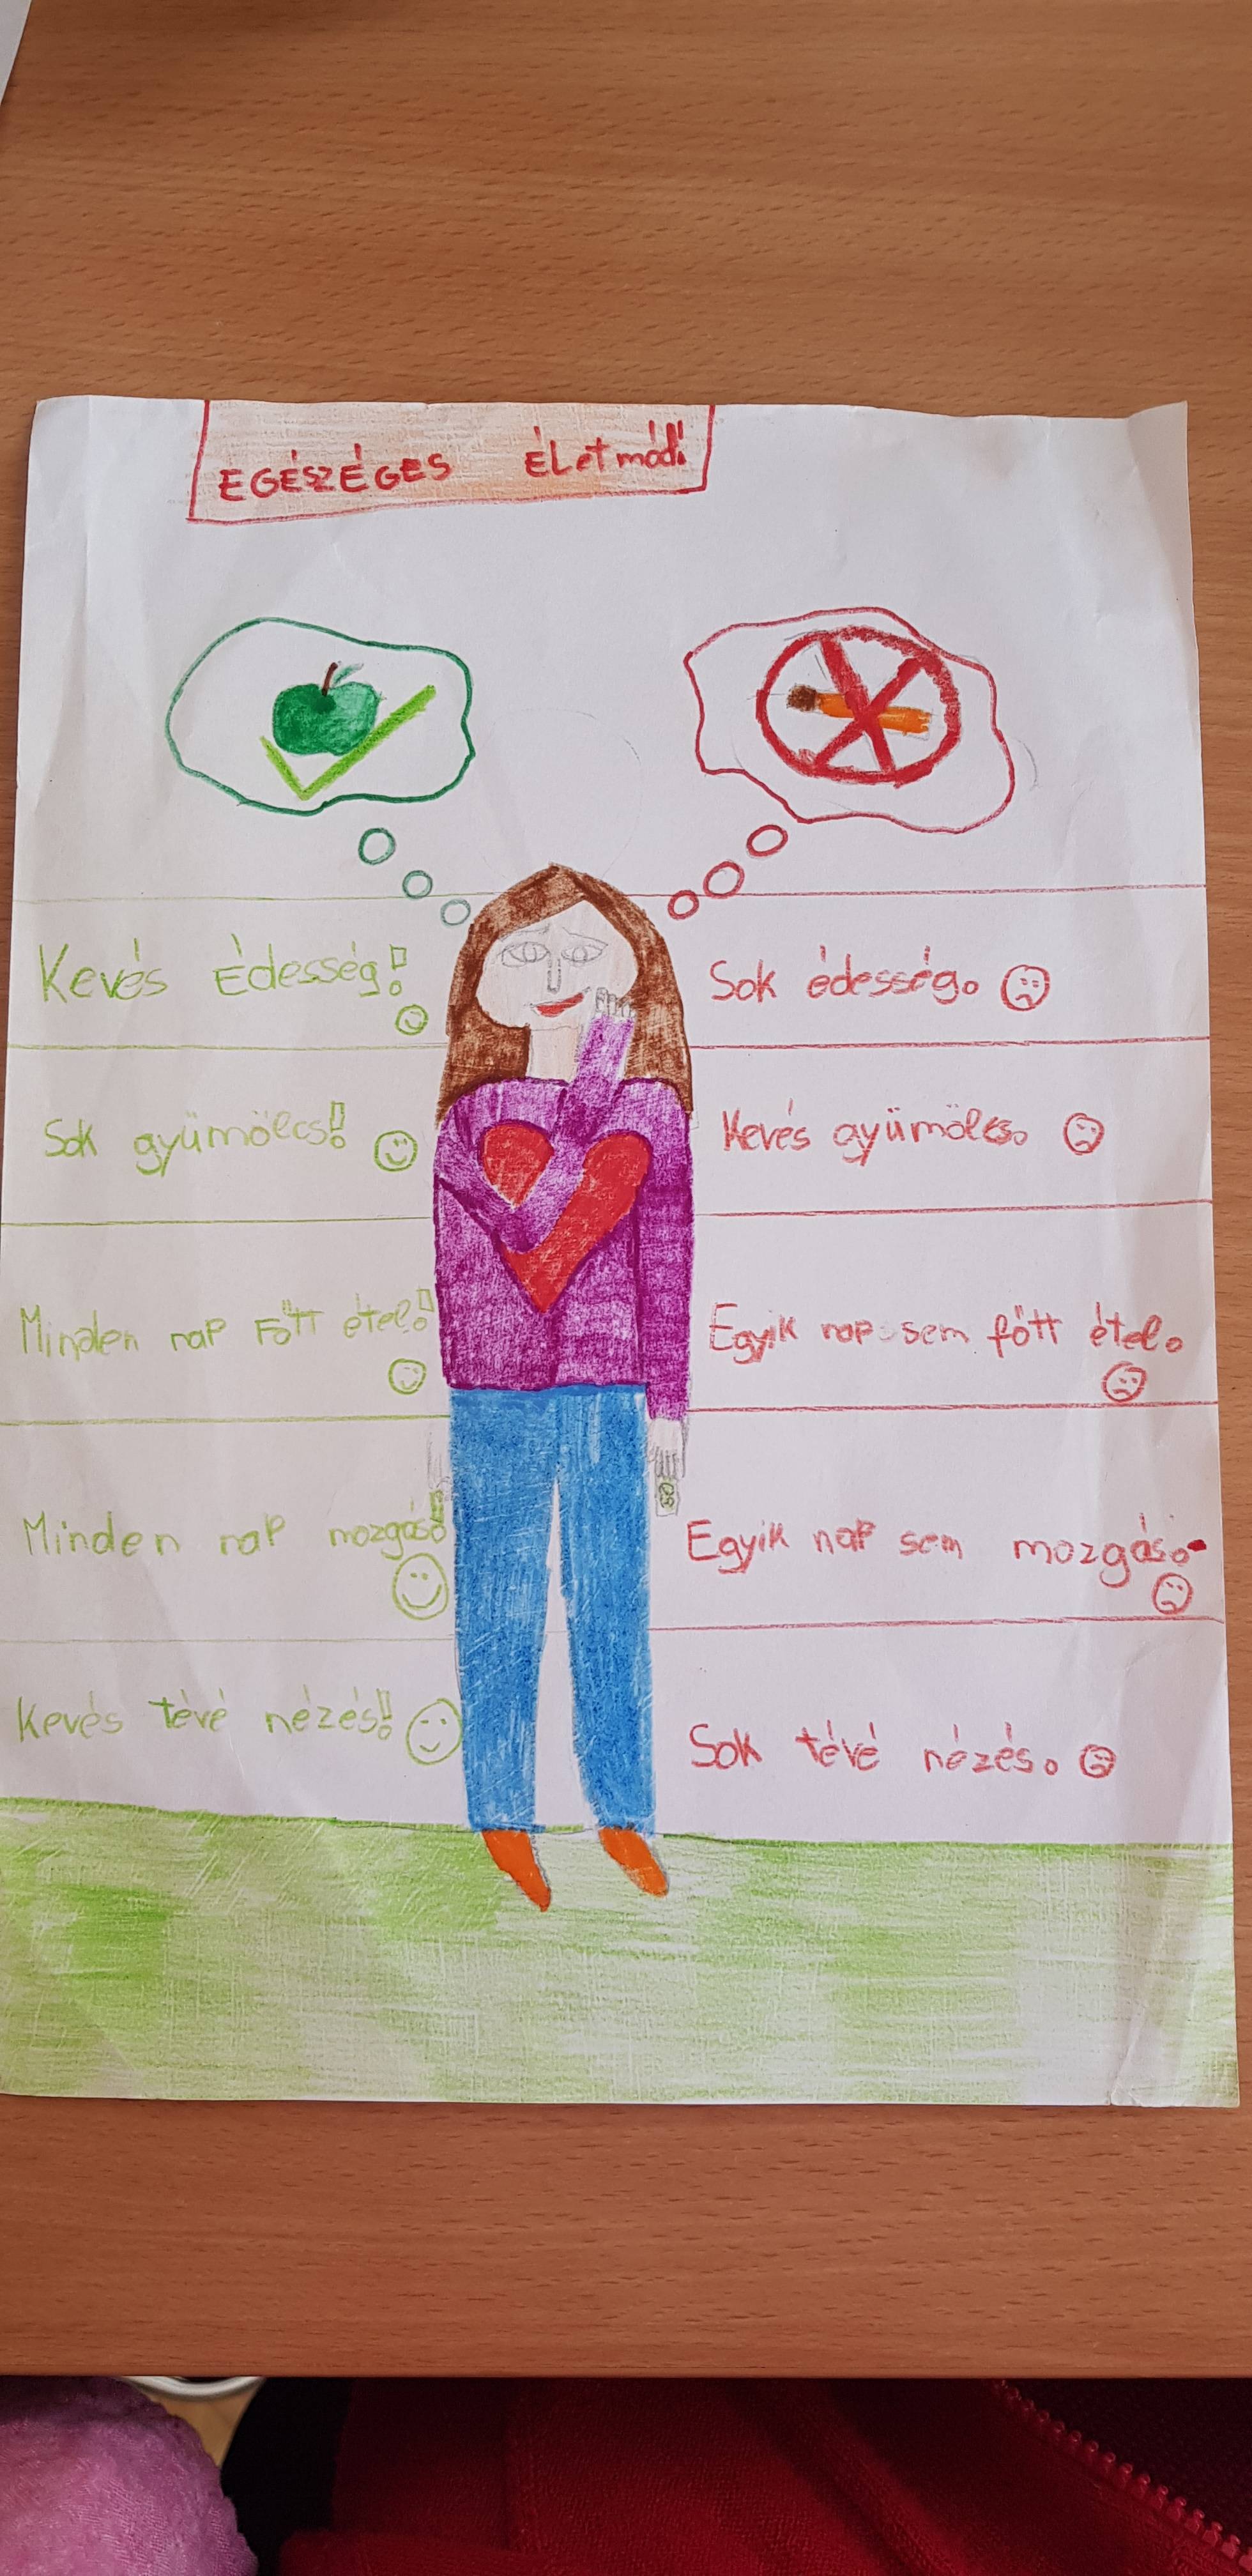 EGÉSZÉGES ÉLetmód!
Kevés Édesség!
Sok édesség.
Sok gyümölcs!
Kevés gyümölcs.
Minden nap Főtt étel!
Egyik nap sem főtt étel.
Minden nap mozgás!
Egyik nap sem mozgás.
Kevés tévé nézés!
Sok tévé nézés.